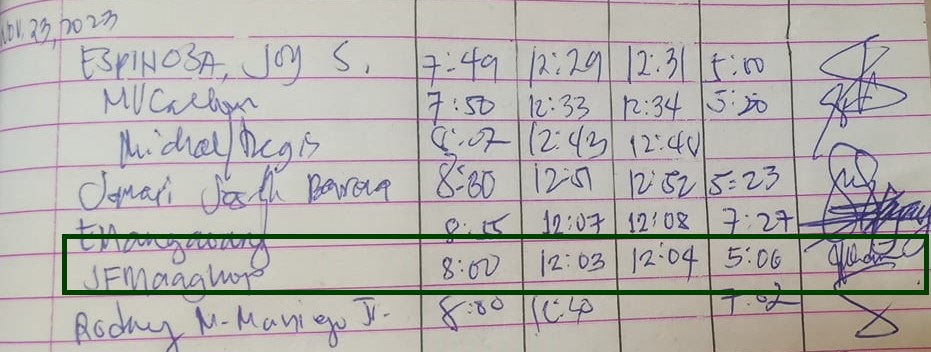 Nov. 23, 2023
ESPINOSA, Joy S. 7:49 12:29 12:31 5:00
7:50 12:33 12:34 5:20
Michael Regis 8:07 12:43 12:44
8:30 12:51 12:52 5:23
EMangawang 12:07 12:08 7:27
JFMaaghop 8:00 12:03 12:04 5:06
Rodny M. Maniego Jr. 8:00 12:40 7:02